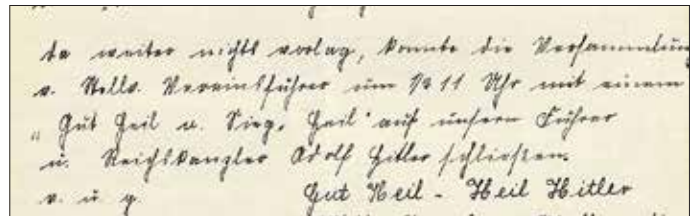 da weiter nichts vorlag, konnte die Versammlung
v. Stellv. Vereinsführer um ½ 11 Uhr mit einem
„Gut Heil u. Sieg. Heil“ auf unsern Führer
u. Reichskanzler Adolf Hitler schließen.
v. u. g. Gut Heil - Heil Hitler